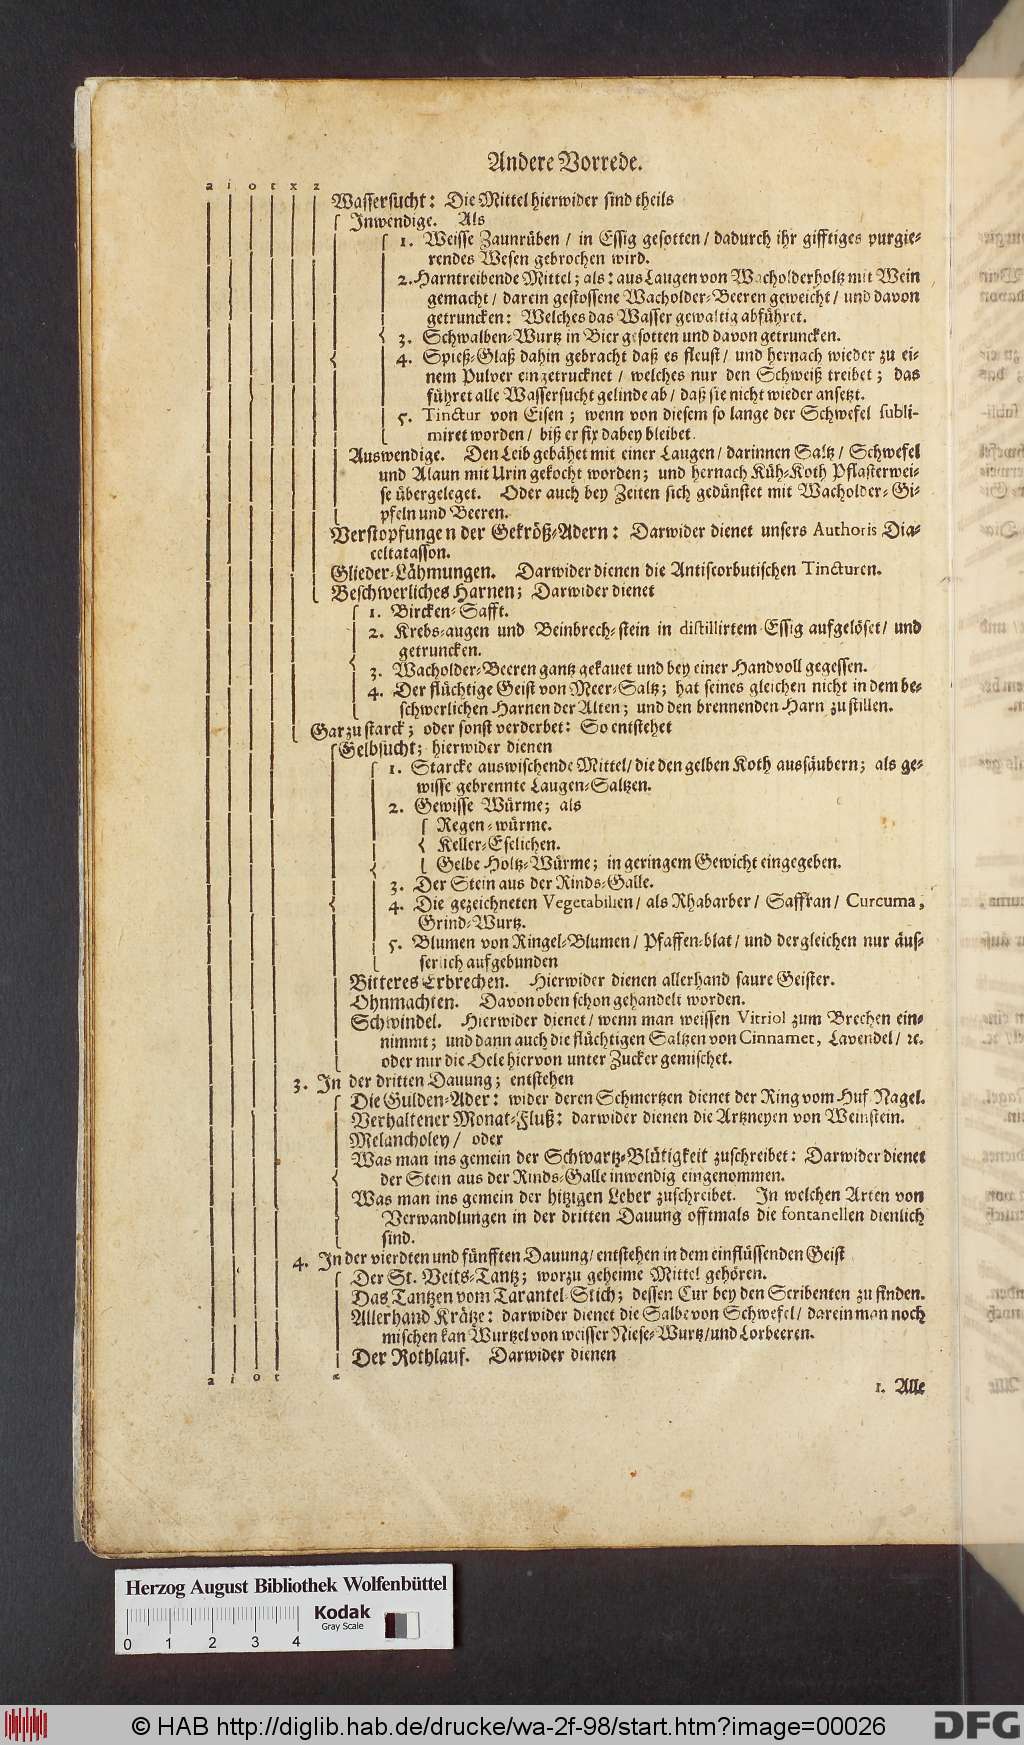 Andere Vorrede.
a i o t x z
Wassersucht: Die Mittel hierwider sind theils
Inwendige. Als
1. Weisse Zaunrüben / in Essig gesotten / dadurch ihr gifftiges purgie-
rendes Wesen gebrochen wird.
2. Harntreibende Mittel; als: aus Laugen von Wacholderholtz mit Wein
gemacht / darein gestossene Wacholder-Beeren geweicht / und davon
getruncken: Welches das Wasser gewaltig abführet.
3. Schwalben-Wurtz in Bier gesotten und davon getruncken.
4. Spieß-Glaß dahin gebracht daß es fleust / und hernach wieder zu ei-
nem Pulver eingetrucknet / welches nur den Schweiß treibet; das
führet alle Wassersucht gelinde ab / daß sie nicht wieder ansetzt.
5. Tinctur von Eisen; wenn von diesem so lange der Schwefel subli-
miret worden / biß er fix dabey bleibet.
Auswendige. Den Leib gebähet mit einer Laugen / darinnen Saltz / Schwefel
und Alaun mit Urin gekocht worden; und hernach Küh-Koth Pflasterwei-
se übergeleget. Oder auch bey Zeiten sich gedünstet mit Wacholder-Gi-
pfeln und Beeren.
Verstopfungen der Gekröß-Adern: Darwider dienet unsers Authoris Dia-
celtatasson.
Glieder-Lähmungen. Darwider dienen die Antiscorbutischen Tincturen.
Beschwerliches Harnen; Darwider dienet
1. Bircken-Safft.
2. Krebs-augen und Beinbrech-stein in distillirtem Essig aufgelöset / und
getruncken.
3. Wacholder-Beeren gantz gekauet und bey einer Handvoll gegessen.
4. Der flüchtige Geist von Meer-Saltz; hat seines gleichen nicht in dem be-
schwerlichen Harnen der Alten; und den brennenden Harn zu stillen.
Gar zu starck; oder sonst verderbet: So entstehet
Gelbsucht; hierwider dienen
1. Starcke auswischende Mittel / die den gelben Koth aussäubern; als ge-
wisse gebrennte Laugen-Saltzen.
2. Gewisse Würme; als
Regen-würme.
Keller-Eselichen.
Gelbe Holtz-Würme; in geringem Gewicht eingegeben.
3. Der Stein aus der Rinds-Galle.
4. Die gezeichneten Vegetabilien / als Rhabarber / Saffran / Curcuma,
Grind-Wurtz.
5. Blumen von Ringel-Blumen / Pfaffen-blat / und dergleichen nur äus-
serlich aufgebunden
Bitteres Erbrechen. Hierwider dienen allerhand saure Geister.
Ohnmachten. Davon oben schon gehandelt worden.
Schwindel. Hierwider dienet / wenn man weissen Vitriol zum Brechen ein-
nimmt; und dann auch die flüchtigen Saltzen von Cinnamet, Lavendel / ꝛc.
oder nur die Oele hiervon unter Zucker gemischet.
3. In der dritten Dauung; entstehen
Die Gulden-Ader: wider deren Schmertzen dienet der Ring vom Huf-Nagel.
Verhaltener Monat-Fluß: darwider dienen die Artzneyen von Weinstein.
Melancholey / oder
Was man ins gemein der Schwartz-Blütigkeit zuschreibet: Darwider dienet
der Stein aus der Rinds-Galle inwendig eingenommen.
Was man ins gemein der hitzigen Leber zuschreibet. In welchen Arten von
Verwandlungen in der dritten Dauung offtmals die fontanellen dienlich
sind.
4. In der vierdten und fünfften Dauung / entstehen in dem einflüssenden Geist
Der St. Veits-Tantz; worzu geheime Mittel gehören.
Das Tantzen vom Tarantel-Stich; dessen Cur bey den Scribenten zu finden.
Allerhand Krätze: darwider dienet die Salbe von Schwefel / darein man noch
mischen kan Wurtzel von weisser Niese-Wurtz / und Lorbeeren.
Der Rothlauf. Darwider dienen
a i o t æ
1. Alle
Herzog August Bibliothek Wolfenbüttel
Kodak
Gray Scale
0 1 2 3 4
© HAB http://diglib.hab.de/drucke/wa-2f-98/start.htm?image=00026
DFG